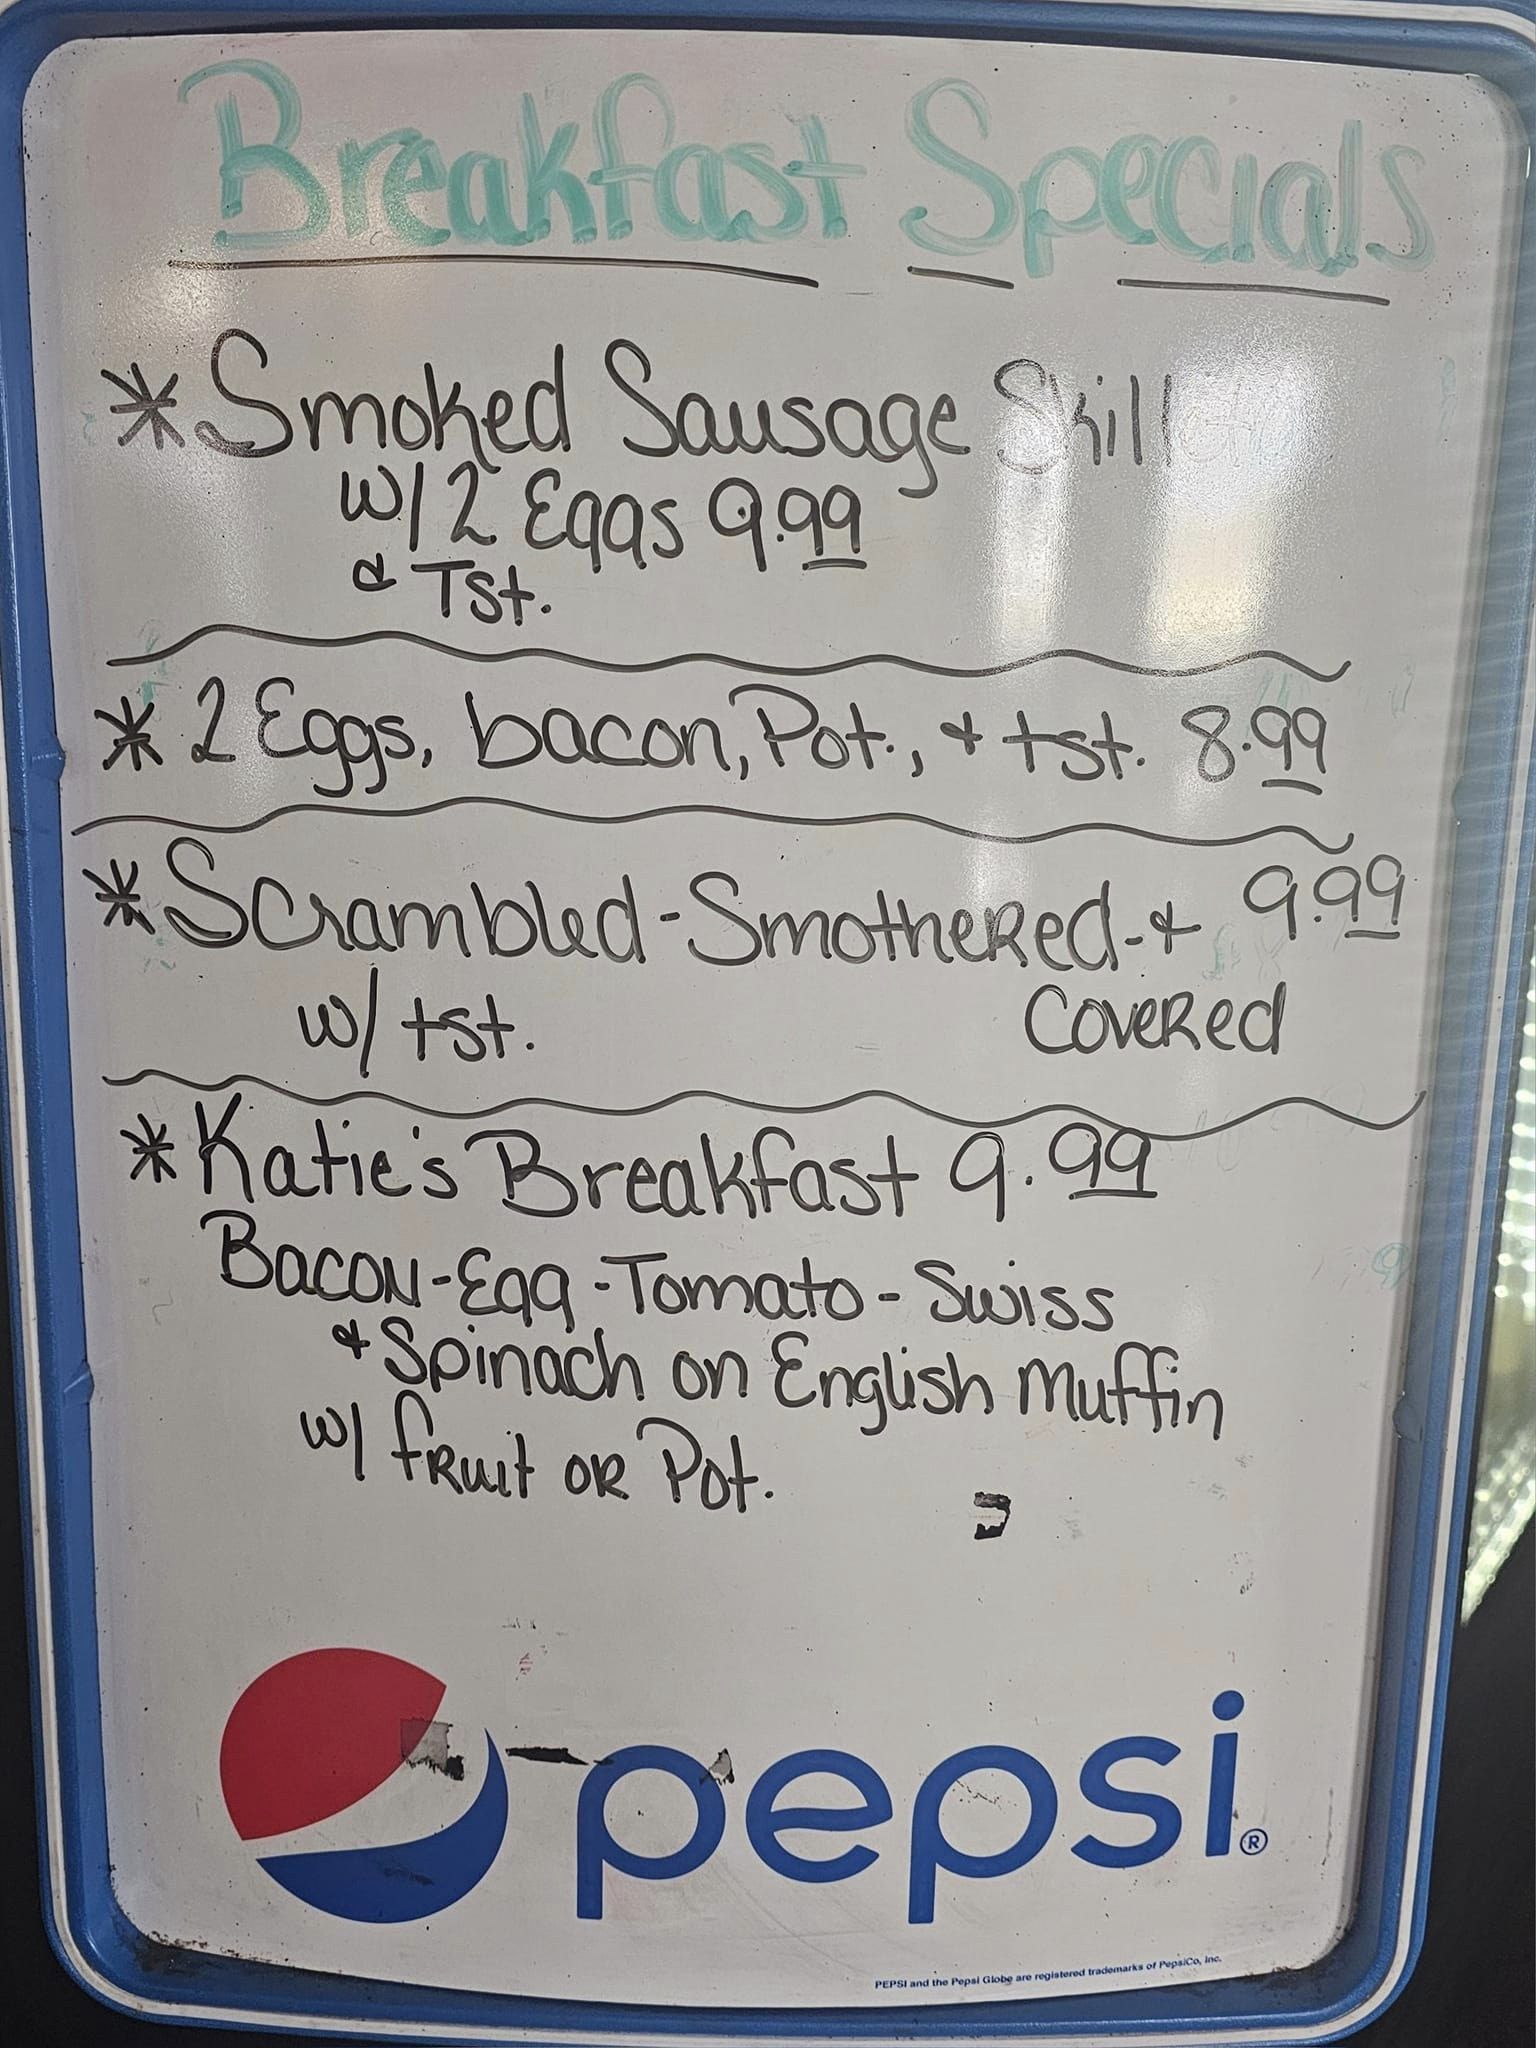 Breakfast Specials
* Smoked Sausage Skillet
w/ 2 Eggs 9.99
& Tst.
* 2 Eggs, bacon, Pot., & tst. 8.99
* Scrambled - Smothered - & 9.99
w/ tst. Covered
* Katie's Breakfast 9.99
Bacon - Egg - Tomato - Swiss
& Spinach on English Muffin
w/ fruit or Pot.
pepsi®
PEPSI and the Pepsi Globe are registered trademarks of PepsiCo, Inc.